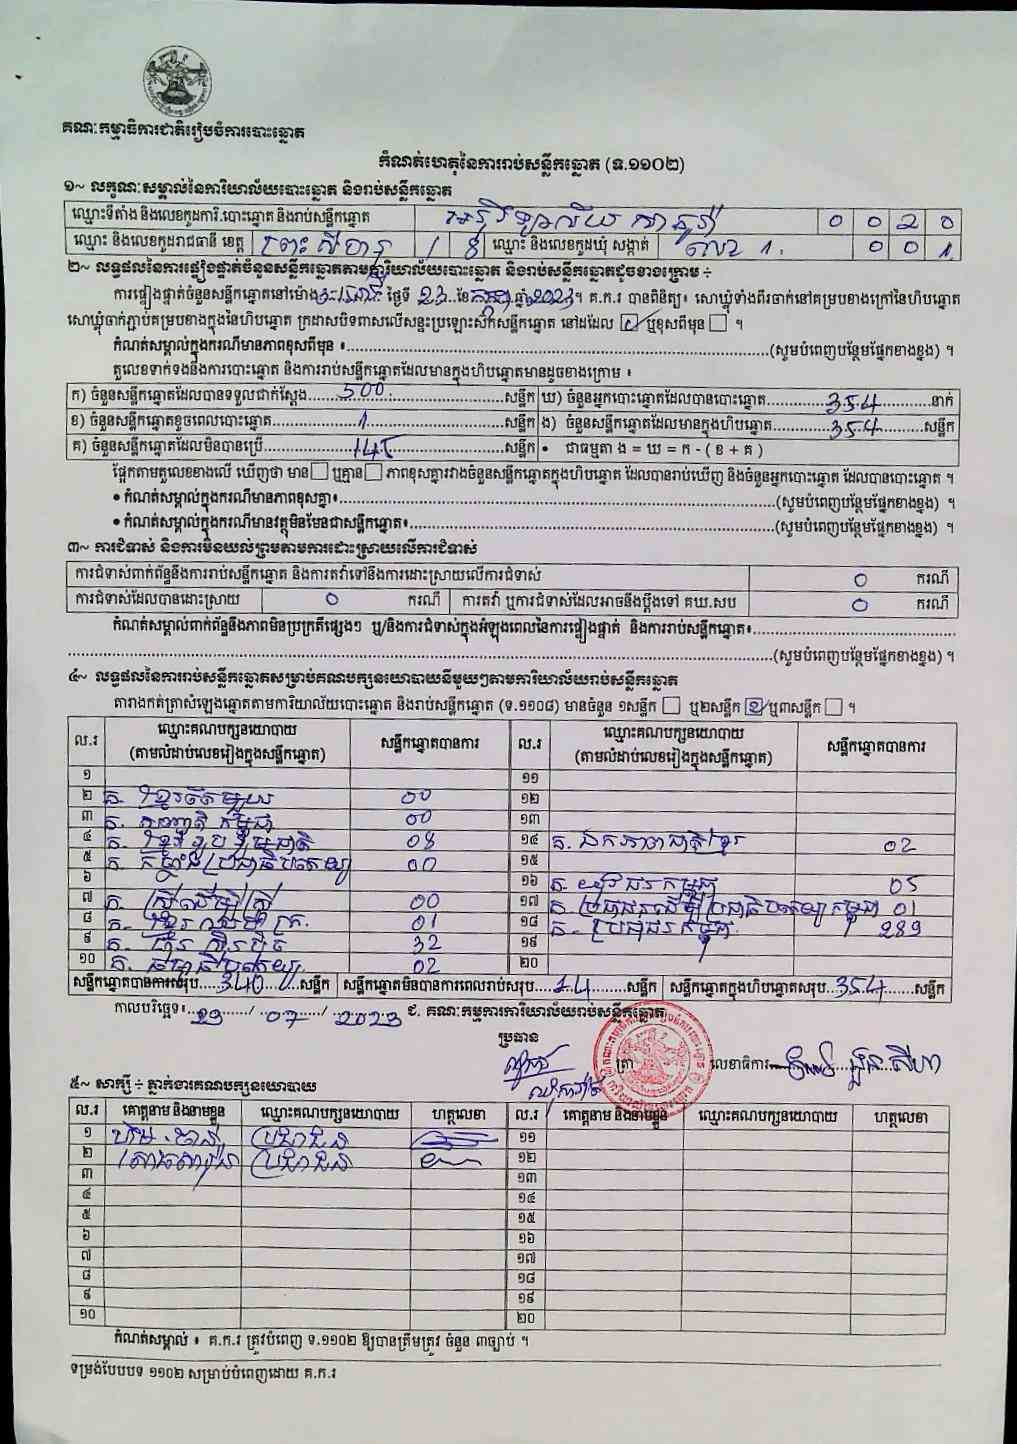 គណៈកម្មាធិការជាតិរៀបចំការបោះឆ្នោត
កំណត់ហេតុនៃការរាប់សន្លឹកឆ្នោត (ទ.១១០២)
១~ លក្ខណៈសម្គាល់នៃការិយាល័យបោះឆ្នោត និងរាប់សន្លឹកឆ្នោត
ឈ្មោះទីតាំង និងលេខកូដការិ.បោះឆ្នោត និងរាប់សន្លឹកឆ្នោត 0 0 2 0
ឈ្មោះ និងលេខកូដរាជធានី ខេត្ត ព្រះសីហនុ 1 8 ឈ្មោះ និងលេខកូដឃុំ សង្កាត់ លេខ 1 0 0 1
២~ លទ្ធផលនៃការផ្ទៀងផ្ទាត់ចំនួនសន្លឹកឆ្នោតតាមការិយាល័យបោះឆ្នោត និងរាប់សន្លឹកឆ្នោតដូចខាងក្រោម ÷
ការផ្ទៀងផ្ទាត់ចំនួនសន្លឹកឆ្នោតនៅម៉ោង ថ្ងៃទី 23 ខែ កក្កដា ឆ្នាំ 2023 ។ គ.ក.រ បានពិនិត្យ៖ សោឃ្លុំទាំងពីរចាក់នៅគម្របខាងក្រៅនៃហិបឆ្នោត
សោឃ្លុំចាក់ភ្ជាប់គម្របខាងក្នុងនៃហិបឆ្នោត ក្រដាសបិទពាសលើសន្ទះប្រឡោះស៊កសន្លឹកឆ្នោត នៅដដែល ឬខុសពីមុន ។
កំណត់សម្គាល់ក្នុងករណីមានភាពខុសពីមុន ៖ (សូមបំពេញបន្ថែមផ្នែកខាងខ្នង) ។
តួលេខទាក់ទងនឹងការបោះឆ្នោត និងការរាប់សន្លឹកឆ្នោតដែលមានក្នុងហិបឆ្នោតមានដូចខាងក្រោម ៖
ក) ចំនួនសន្លឹកឆ្នោតដែលបានទទួលជាក់ស្តែង 500 សន្លឹក ឃ) ចំនួនអ្នកបោះឆ្នោតដែលបានបោះឆ្នោត 354 នាក់
ខ) ចំនួនសន្លឹកឆ្នោតខូចពេលបោះឆ្នោត 1 សន្លឹក ង) ចំនួនសន្លឹកឆ្នោតដែលមានក្នុងហិបឆ្នោត 354 សន្លឹក
គ) ចំនួនសន្លឹកឆ្នោតដែលមិនបានប្រើ 145 សន្លឹក • ជាធម្មតា ង = ឃ = ក - ( ខ + គ )
ផ្អែកតាមតួលេខខាងលើ ឃើញថា មាន ឬគ្មាន ភាពខុសគ្នារវាងចំនួនសន្លឹកឆ្នោតក្នុងហិបឆ្នោត ដែលបានរាប់ឃើញ និងចំនួនអ្នកបោះឆ្នោត ដែលបានបោះឆ្នោត ។
• កំណត់សម្គាល់ក្នុងករណីមានភាពខុសគ្នា៖ (សូមបំពេញបន្ថែមផ្នែកខាងខ្នង) ។
• កំណត់សម្គាល់ក្នុងករណីមានវត្ថុមិនមែនជាសន្លឹកឆ្នោត៖ (សូមបំពេញបន្ថែមផ្នែកខាងខ្នង) ។
៣~ ការជំទាស់ និងការមិនយល់ព្រមតាមការដោះស្រាយលើការជំទាស់
ការជំទាស់ពាក់ព័ន្ធនឹងការរាប់សន្លឹកឆ្នោត និងការតវ៉ាទៅនឹងការដោះស្រាយលើការជំទាស់ 0 ករណី
ការជំទាស់ដែលបានដោះស្រាយ 0 ករណី ការតវ៉ា ឬការជំទាស់ដែលអាចនឹងប្តឹងទៅ គឃ.សប 0 ករណី
កំណត់សម្គាល់ពាក់ព័ន្ធនឹងភាពមិនប្រក្រតីផ្សេងៗ ឬ/និងការជំទាស់ក្នុងអំឡុងពេលនៃការផ្ទៀងផ្ទាត់ និងការរាប់សន្លឹកឆ្នោត៖
(សូមបំពេញបន្ថែមផ្នែកខាងខ្នង) ។
៤~ លទ្ធផលនៃការរាប់សន្លឹកឆ្នោតសម្រាប់គណបក្សនយោបាយនីមួយៗតាមការិយាល័យរាប់សន្លឹកឆ្នោត
តារាងកត់ត្រាសំឡេងឆ្នោតតាមការិយាល័យបោះឆ្នោត និងរាប់សន្លឹកឆ្នោត (ទ.១១០៨) មានចំនួន ១សន្លឹក ឬ២សន្លឹក ឬ៣សន្លឹក ។
ល.រ ឈ្មោះគណបក្សនយោបាយ (តាមលំដាប់លេខរៀងក្នុងសន្លឹកឆ្នោត) សន្លឹកឆ្នោតបានការ ល.រ ឈ្មោះគណបក្សនយោបាយ (តាមលំដាប់លេខរៀងក្នុងសន្លឹកឆ្នោត) សន្លឹកឆ្នោតបានការ
១ ១១
២ គ. ខ្មែរតែមួយ 00 ១២
៣ គ. សញ្ជាតិកម្ពុជា 00 ១៣
៤ គ. ខ្មែររួបរួមជាតិ 04 ១៤ គ. ឯកភាពជាតិខ្មែរ 02
៥ គ. កម្លាំងប្រជាធិបតេយ្យ 00 ១៥
៦ ១៦ គ. យុវជនកម្ពុជា 05
៧ គ. ស្ត្រីដើម្បីស្ត្រី 00 ១៧ គ. ប្រជាជនដើម្បីប្រជាធិបតេយ្យកម្ពុជា 01
៨ 01 ១៨ គ. ប្រជាជនកម្ពុជា 289
៩ គ. ហ៊្វុនស៊ិនប៉ិច 32 ១៩
១០ គ. ធម្មាធិបតេយ្យ 02 ២០
សន្លឹកឆ្នោតបានការសរុប 340 សន្លឹក សន្លឹកឆ្នោតមិនបានការពេលរាប់សរុប 14 សន្លឹក សន្លឹកឆ្នោតក្នុងហិបឆ្នោតសរុប 354 សន្លឹក
កាលបរិច្ឆេទ៖ 23 / 07 / 2023 ជ. គណៈកម្មការការិយាល័យរាប់សន្លឹកឆ្នោត
ប្រធាន
ត្រា លេខាធិការ
៥~ សាក្សី ÷ ភ្នាក់ងារគណបក្សនយោបាយ
ល.រ គោត្តនាម និងនាមខ្លួន ឈ្មោះគណបក្សនយោបាយ ហត្ថលេខា ល.រ គោត្តនាម និងនាមខ្លួន ឈ្មោះគណបក្សនយោបាយ ហត្ថលេខា
១ ប្រជាជន ១១
២ ប្រជាជន ១២
៣ ១៣
៤ ១៤
៥ ១៥
៦ ១៦
៧ ១៧
៨ ១៨
៩ ១៩
១០ ២០
កំណត់សម្គាល់ ៖ គ.ក.រ ត្រូវបំពេញ ទ.១១០២ ឱ្យបានត្រឹមត្រូវ ចំនួន ៣ច្បាប់ ។
ទម្រង់បែបបទ ១១០២ សម្រាប់បំពេញដោយ គ.ក.រ